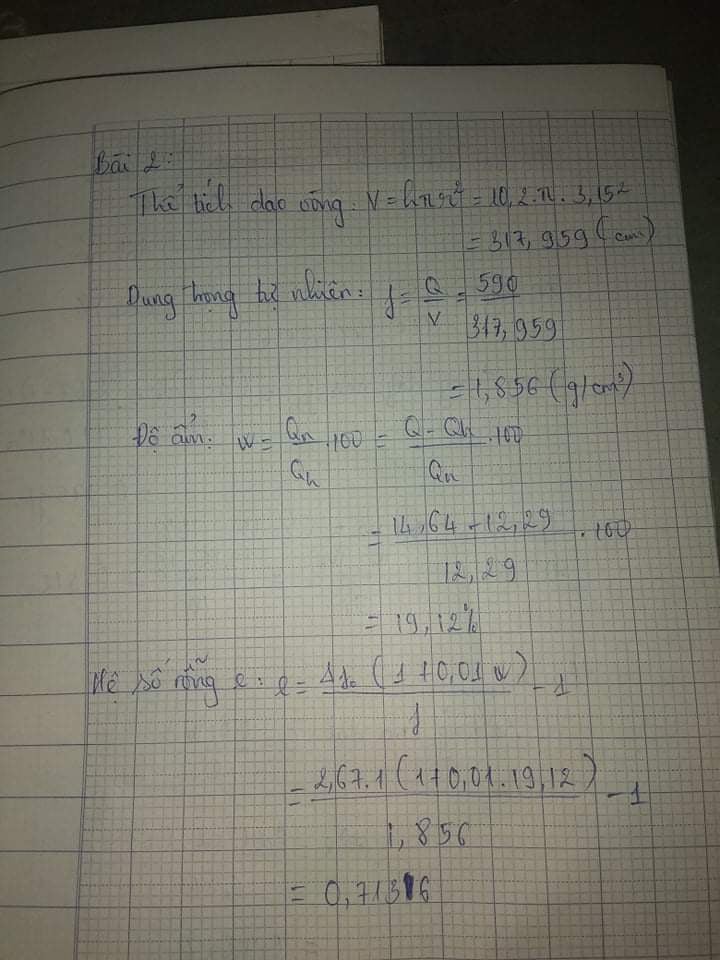 Bài 2:
Thể tích dao vòng: V = hπr² = 10,2.π.3,15²
= 317,959 (cm³)
Dung trọng tự nhiên: γ = Q/V = 590/317,959
= 1,856 (g/cm³)
Độ ẩm: W = Qn/Qh .100 = Q - Qh/Qh .100
= 14,64 - 12,29/12,29 .100
= 19,12%
Hệ số rỗng e: e = Δγ₀ (1+0,01W)/γ - 1
= 2,67.1 (1+0,01.19,12)/1,856 - 1
= 0,7136